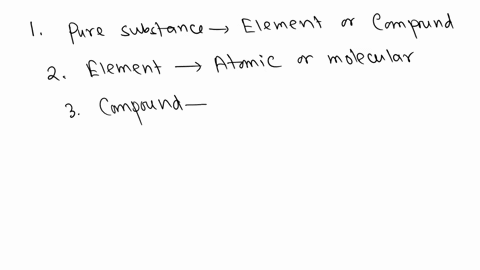 1. Pure substance → Element or Compound
2. Element → Atomic or molecular
3. Compound —